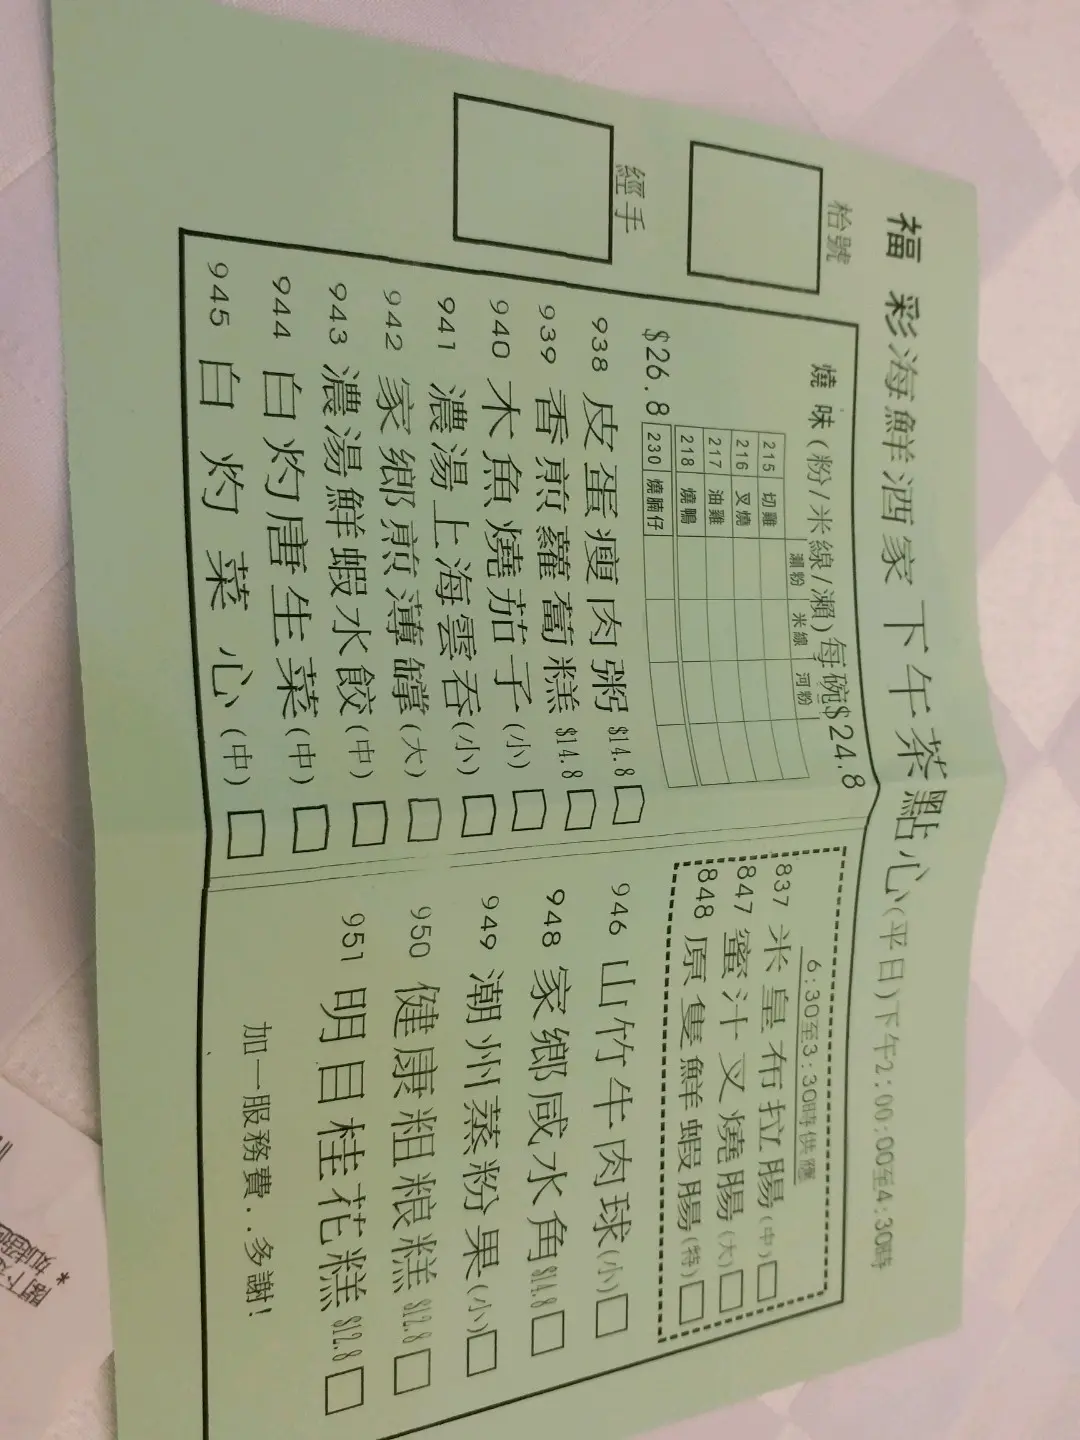 福 彩海鮮酒家 下午茶點心(平日)下午2:00:00至4:30時
枱號
經手
燒味(粉/米線/瀨)每碗$24.8
瀨粉 米線 河粉
215 切雞
216 叉燒
217 油雞
218 燒鴨
$26.8 230 燒腩仔
938 皮蛋瘦肉粥 $14.8
939 香煎蘿蔔糕 $14.8
940 木魚燒茄子(小)
941 濃湯上海雲吞(小)
942 家鄉煎薄罉(大)
943 濃湯鮮蝦水餃(中)
944 白灼唐生菜(中)
945 白灼菜心(中)
6:30至3:30時供應
837 米皇布拉腸(中)
847 蜜汁叉燒腸(大)
848 原隻鮮蝦腸(特)
946 山竹牛肉球(小)
948 家鄉咸水角 $14.8
949 潮州蒸粉果(小)
950 健康粗粮糕 $12.8
951 明目桂花糕 $12.8
加一服務費..多謝!